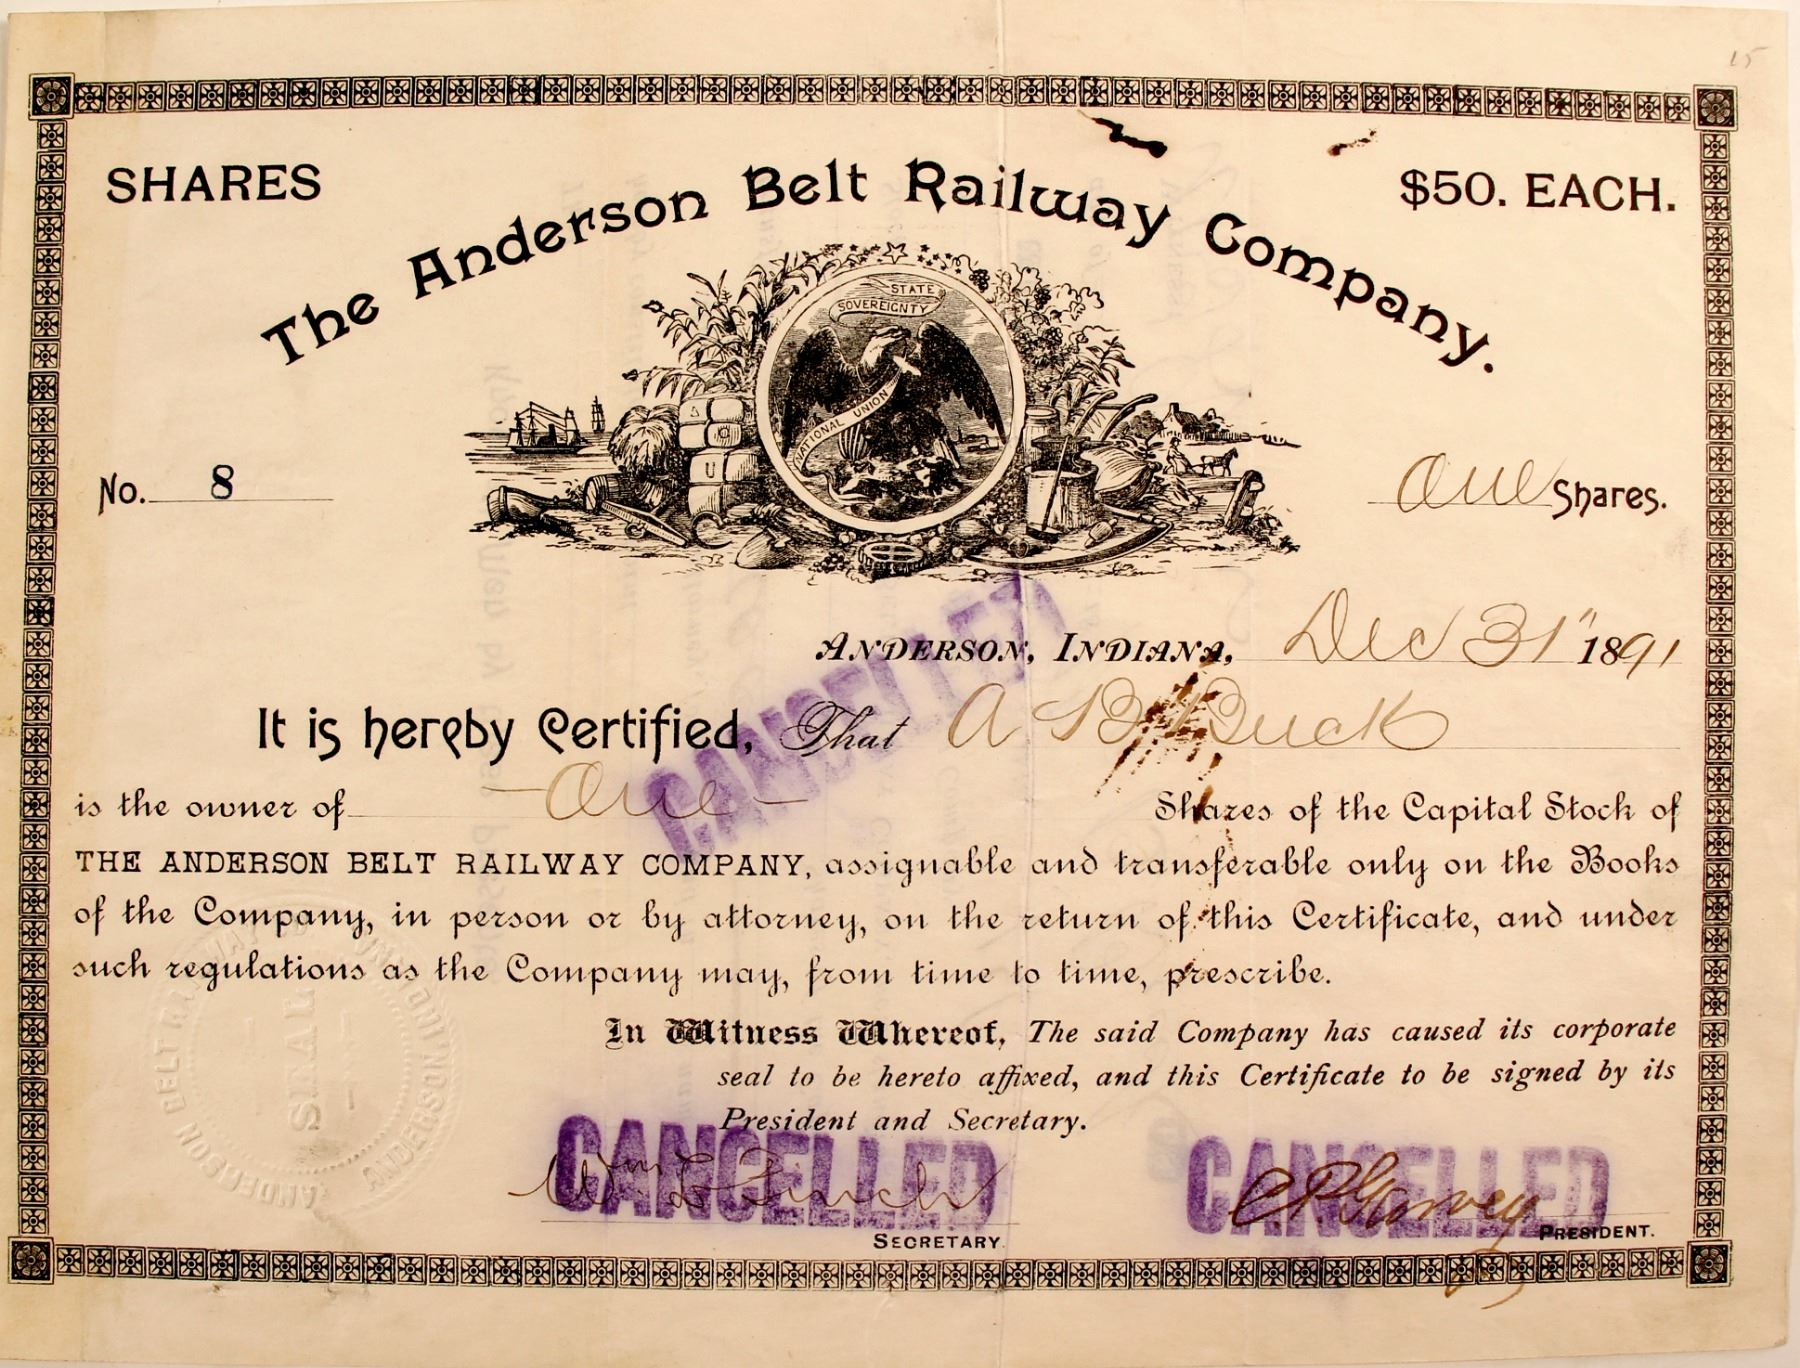 15
SHARES
$50. EACH.
The Anderson Belt Railway Company.
STATE
SOVEREIGNTY
NATIONAL UNION
No. 8
One Shares.
ANDERSON, INDIANA, Dec 31" 1891
It is hereby Certified, That A B Buck
is the owner of - One - Shares of the Capital Stock of
THE ANDERSON BELT RAILWAY COMPANY, assignable and transferable only on the Books
of the Company, in person or by attorney, on the return of this Certificate, and under
such regulations as the Company may, from time to time, prescribe.
CANCELLED
In Witness Whereof, The said Company has caused its corporate
seal to be hereto affixed, and this Certificate to be signed by its
President and Secretary.
ANDERSON BELT RAILWAY
ANDERSON INDIANA
SEAL
CANCELLED
CANCELLED
SECRETARY.
PRESIDENT.